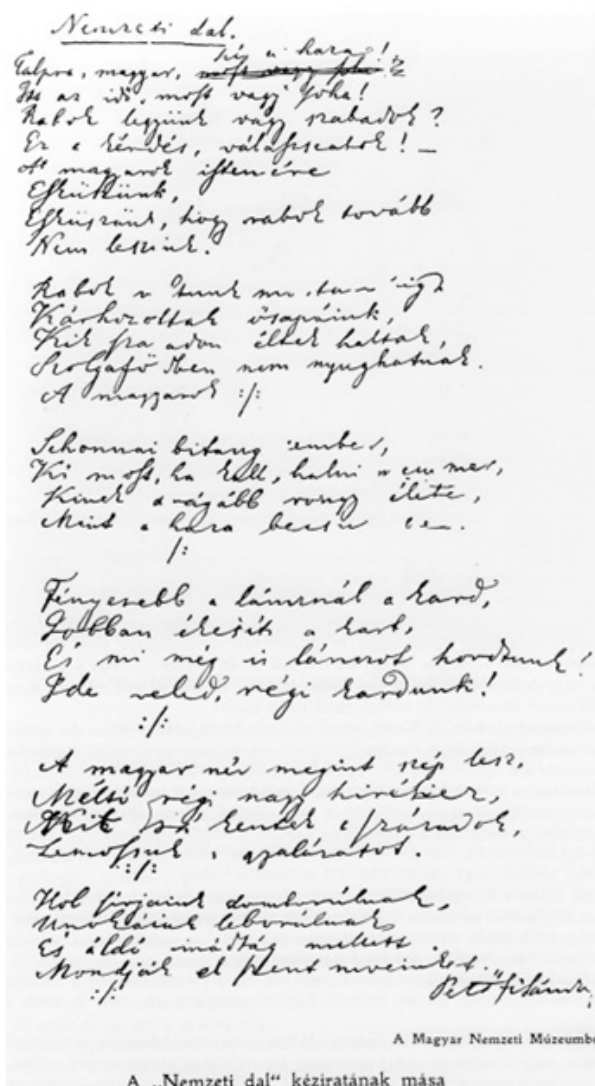 Nemzeti dal.
hí a haza!
Talpra, magyar, most vagy soha!
Itt az idő, most vagy soha!
Rabok legyünk vagy szabadok?
Ez a kérdés, válasszatok! –
A magyarok istenére
Esküszünk,
Esküszünk, hogy rabok tovább
Nem leszünk!
Rabok
Kárhozottak ősapáink,
Kik szabadon éltek haltak,
Szolgaföldben nem nyughatnak.
A magyarok :/:
Sehonnai bitang ember,
Ki most, ha kell, halni nem mer,
Kinek drágább rongy élete,
Mint a haza becsülete.
/:
Fényesebb a láncznál a kard,
Jobban ékesíti a kart,
És mi még is lánczot hordtunk!
Ide veled, régi kardunk!
:/:
A magyar név megint szép lesz,
Méltó régi nagy hiréhez,
Mit rá kentek a századok,
Lemossuk a gyalázatot.
:/:
Hol sírjaink domborúlnak,
Unokáink leborúlnak,
És áldó imádság mellett
Mondják el szent neveinket.
:/:
Petőfi Sándor
A Magyar Nemzeti Múzeumbó
A „Nemzeti dal“ kéziratának mása